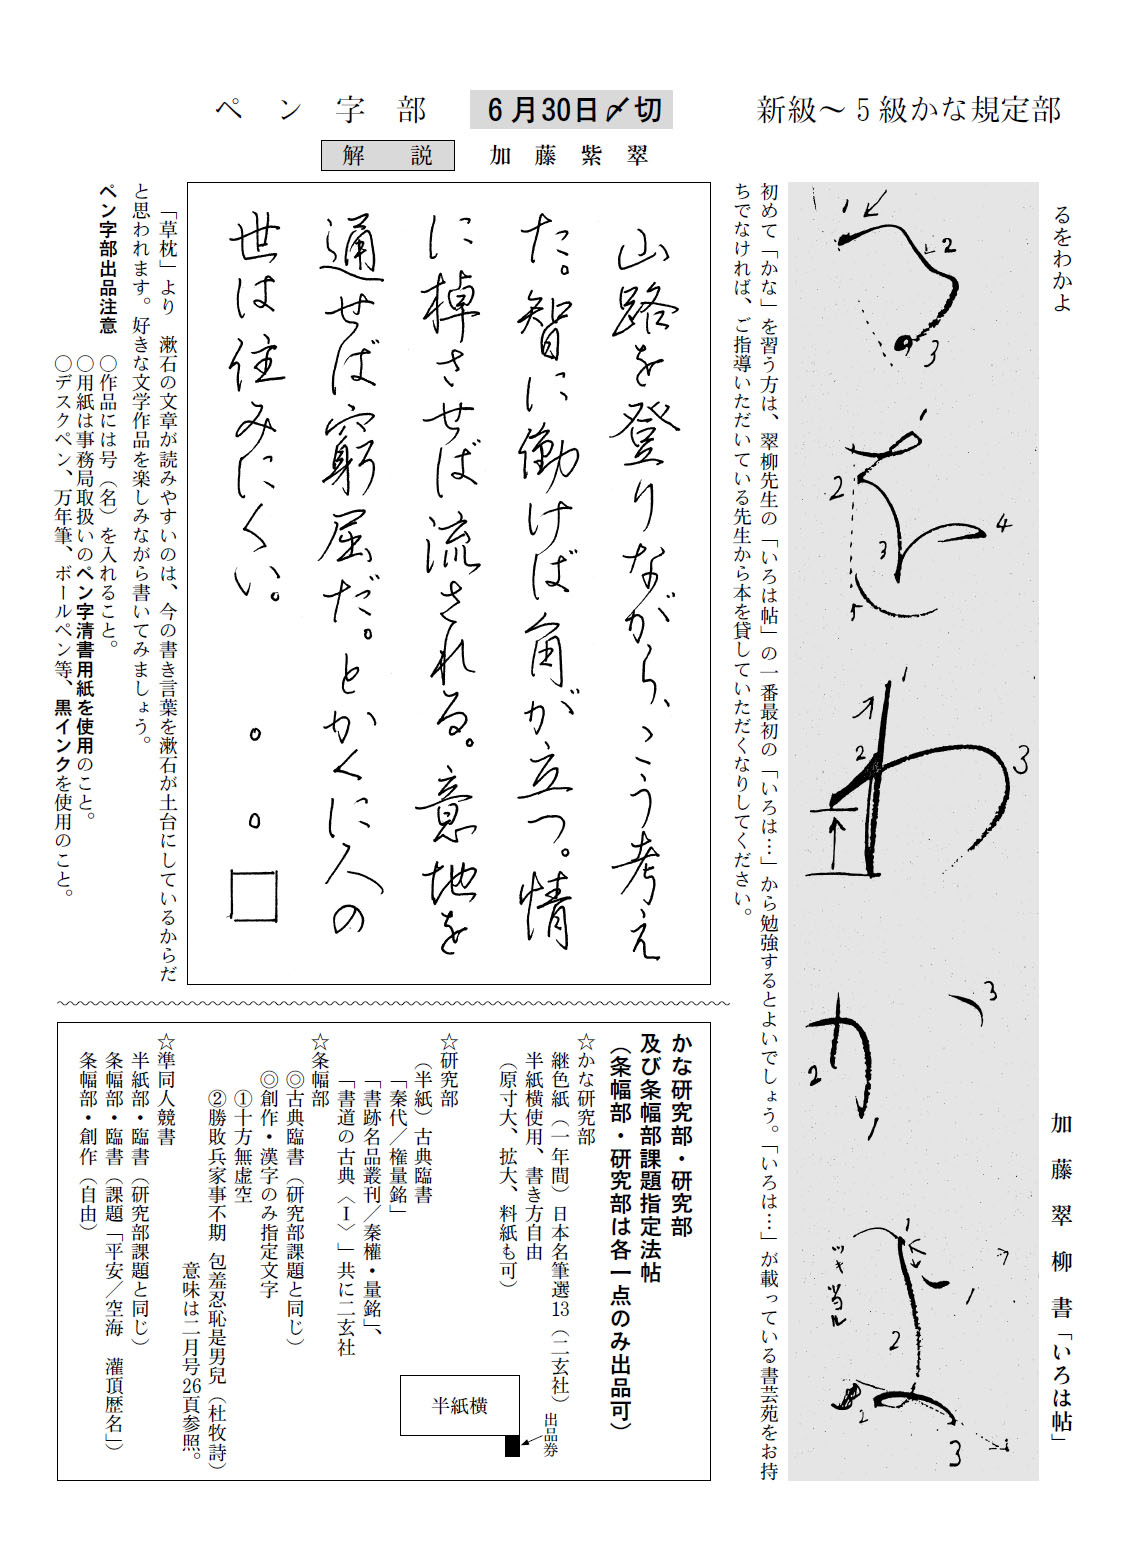 新級～5級かな規定部
6月30日〆切
ペン字部
解説
加藤紫翠
るをわかよ
加藤翠柳書「いろは帖」
1
2
3
る
1
2
3
4
5
を
1
2
3
わ
3
2
1
か
1
1
2
ツキ当ル
2
3
よ
初めて「かな」を習う方は、翠柳先生の「いろは帖」の一番最初の「いろは…」から勉強するとよいでしょう。「いろは…」が載っている書芸苑をお持
ちでなければ、ご指導いただいている先生から本を貸していただくなりしてください。
山路を登りながら、こう考え
た。智に働けば角が立つ。情
に棹させば流される。意地を
通せば窮屈だ。とかくに人の
世は住みにくい。
「草枕」より　漱石の文章が読みやすいのは、今の書き言葉を漱石が土台にしているからだ
と思われます。好きな文学作品を楽しみながら書いてみましょう。
ペン字部出品注意　〇作品には号（名）を入れること。
〇用紙は事務局取扱いのペン字清書用紙を使用のこと。
〇デスクペン、万年筆、ボールペン等、黒インクを使用のこと。
かな研究部・研究部
及び条幅部課題指定法帖
（条幅部・研究部は各一点のみ出品可）
☆かな研究部
継色紙（一年間）日本名筆選13（二玄社）
半紙横使用、書き方自由
（原寸大、拡大、料紙も可）
半紙横
出品券
☆研究部
（半紙）古典臨書
「秦代／権量銘」
「書跡名品叢刊／秦權・量銘」、
「書道の古典〈Ⅰ〉」共に二玄社
☆条幅部
◎古典臨書（研究部課題と同じ）
◎創作・漢字のみ指定文字
①十方無虚空
②勝敗兵家事不期　包羞忍恥是男兒（杜牧詩）
意味は二月号26頁参照。
☆準同人競書
半紙部・臨書（研究部課題と同じ）
条幅部・臨書（課題「平安／空海　灌頂歴名」）
条幅部・創作（自由）